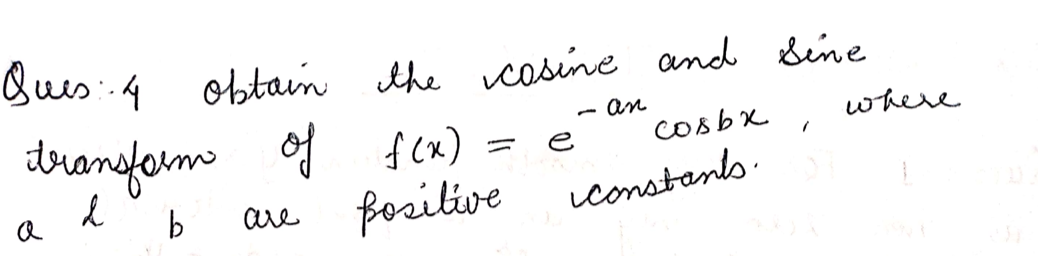 Ques:-4 obtain the cosine and sine
transform of f(x) = e^{-ax} cosbx, where
a & b are positive constants.